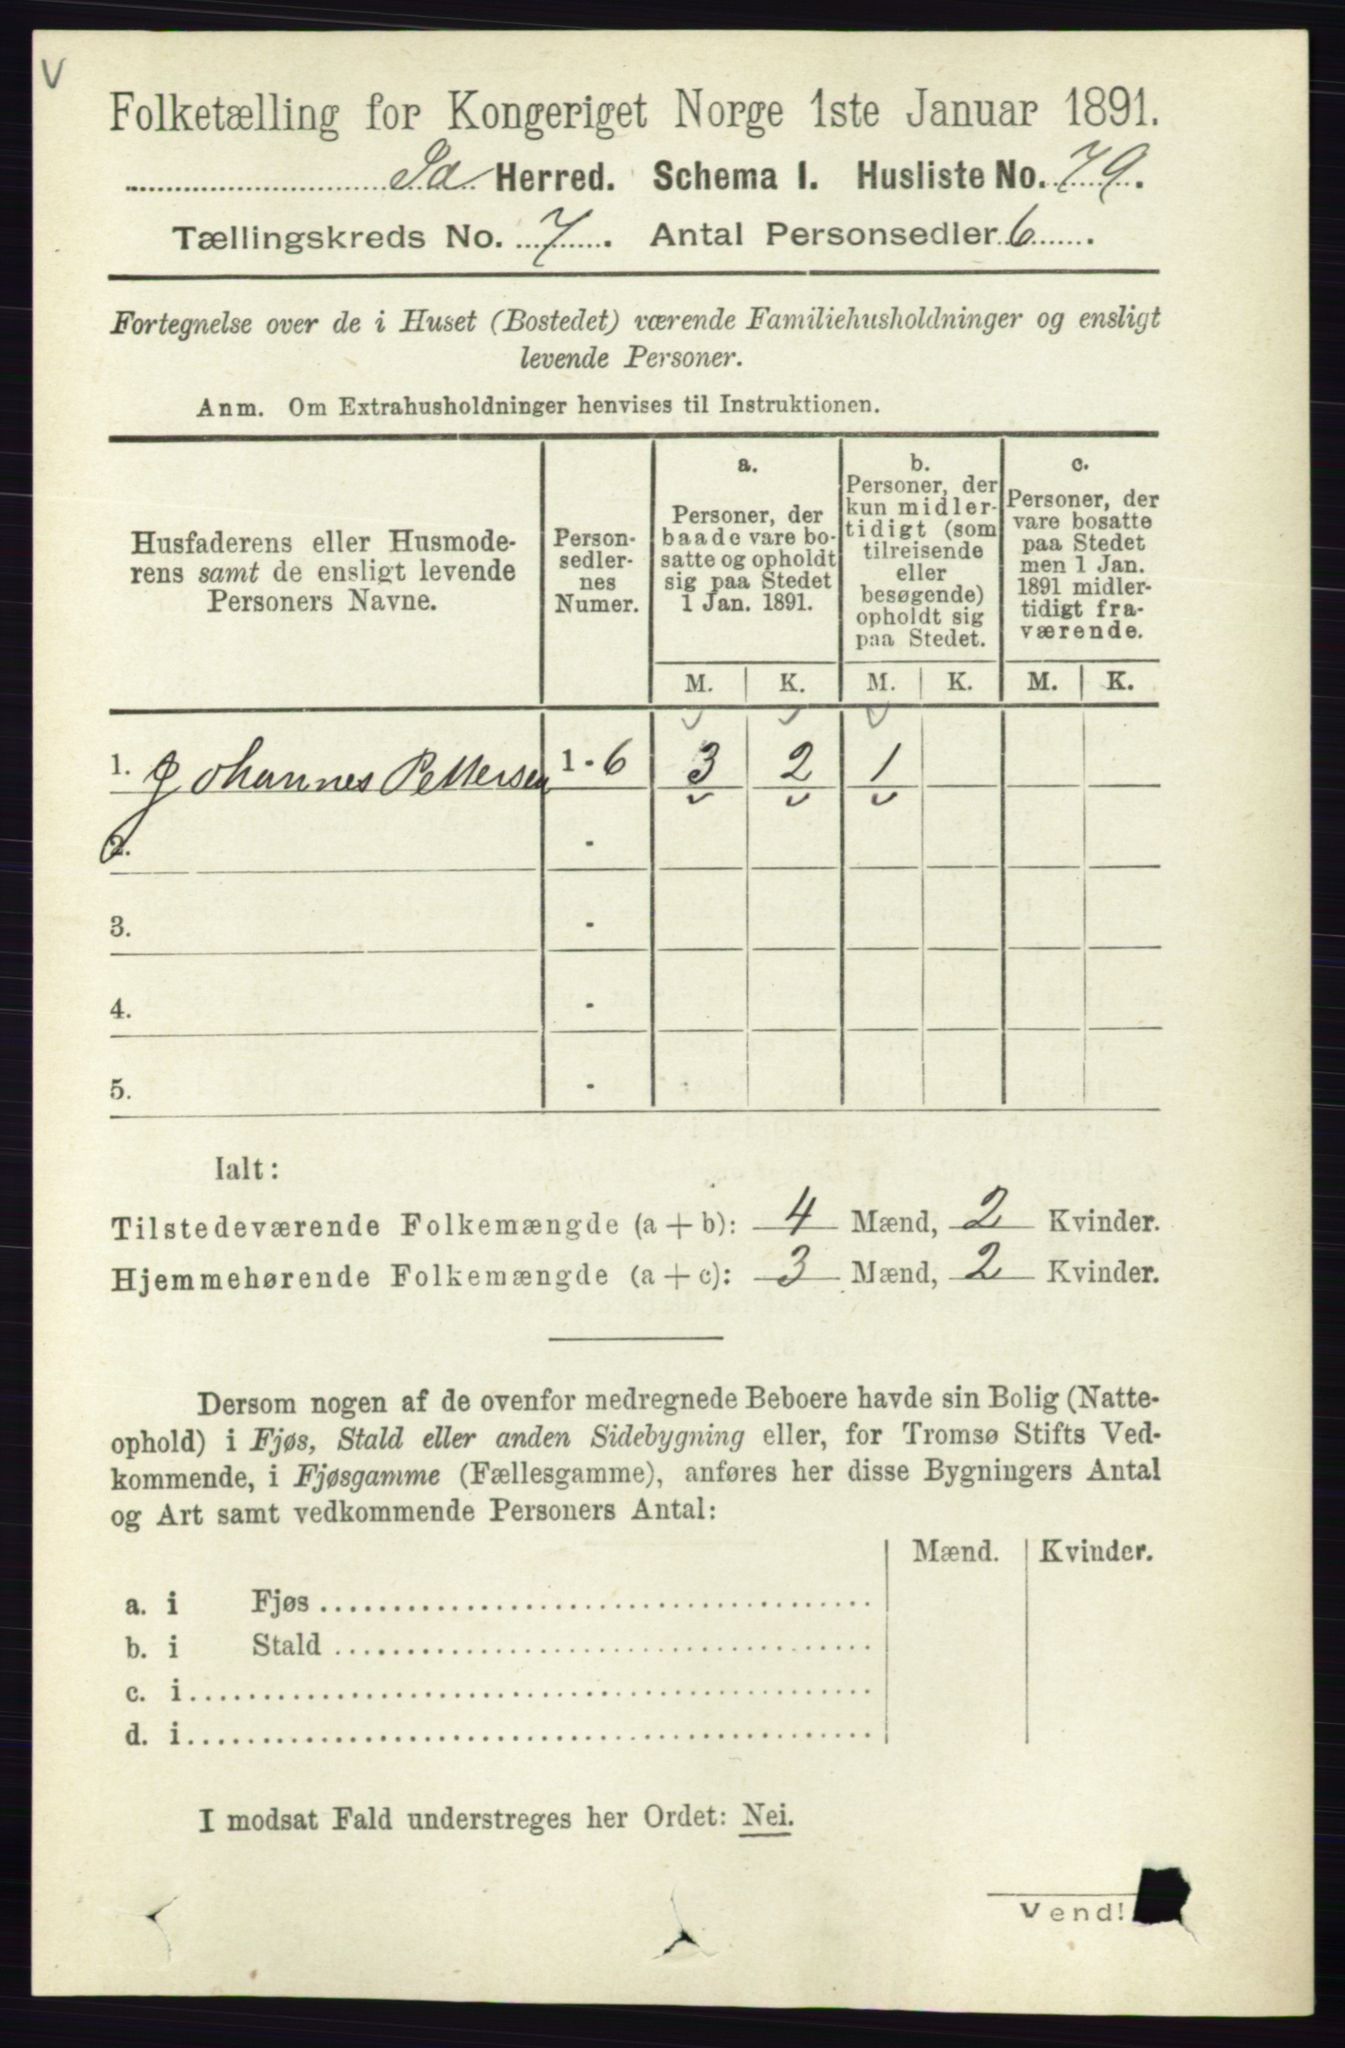 V
Folketælling for Kongeriget Norge 1ste Januar 1891.
Id Herred. Schema I. Husliste No. 79.
Tællingskreds No. 7. Antal Personsedler 6.
Fortegnelse over de i Huset (Bostedet) værende Familiehusholdninger og ensligt
levende Personer.
Anm. Om Extrahusholdninger henvises til Instruktionen.
Husfaderens eller Husmode-
rens samt de ensligt levende
Personers Navne.
Person-
sedler-
nes
Numer.
a.
Personer, der
baade vare bo-
satte og opholdt
sig paa Stedet
1 Jan. 1891.
b.
Personer, der
kun midler-
tidigt (som
tilreisende
eller
besøgende)
opholdt sig
paa Stedet.
c.
Personer, der
vare bosatte
paa Stedet
men 1 Jan.
1891 midler-
tidigt fra-
værende.
M. K. M. K. M. K.
1. Johannes Pettersen 1-6 3 2 1
2. -
3. -
4. -
5. -
Ialt:
Tilstedeværende Folkemængde (a + b): 4 Mænd, 2 Kvinder.
Hjemmehørende Folkemængde (a + c): 3 Mænd, 2 Kvinder.
Dersom nogen af de ovenfor medregnede Beboere havde sin Bolig (Natte-
ophold) i Fjøs, Stald eller anden Sidebygning eller, for Tromsø Stifts Ved-
kommende, i Fjøsgamme (Fællesgamme), anføres her disse Bygningers Antal
og Art samt vedkommende Personers Antal:
Mænd. Kvinder.
a. i Fjøs
b. i Stald
c. i
d. i
I modsat Fald understreges her Ordet: Nei.
Vend!